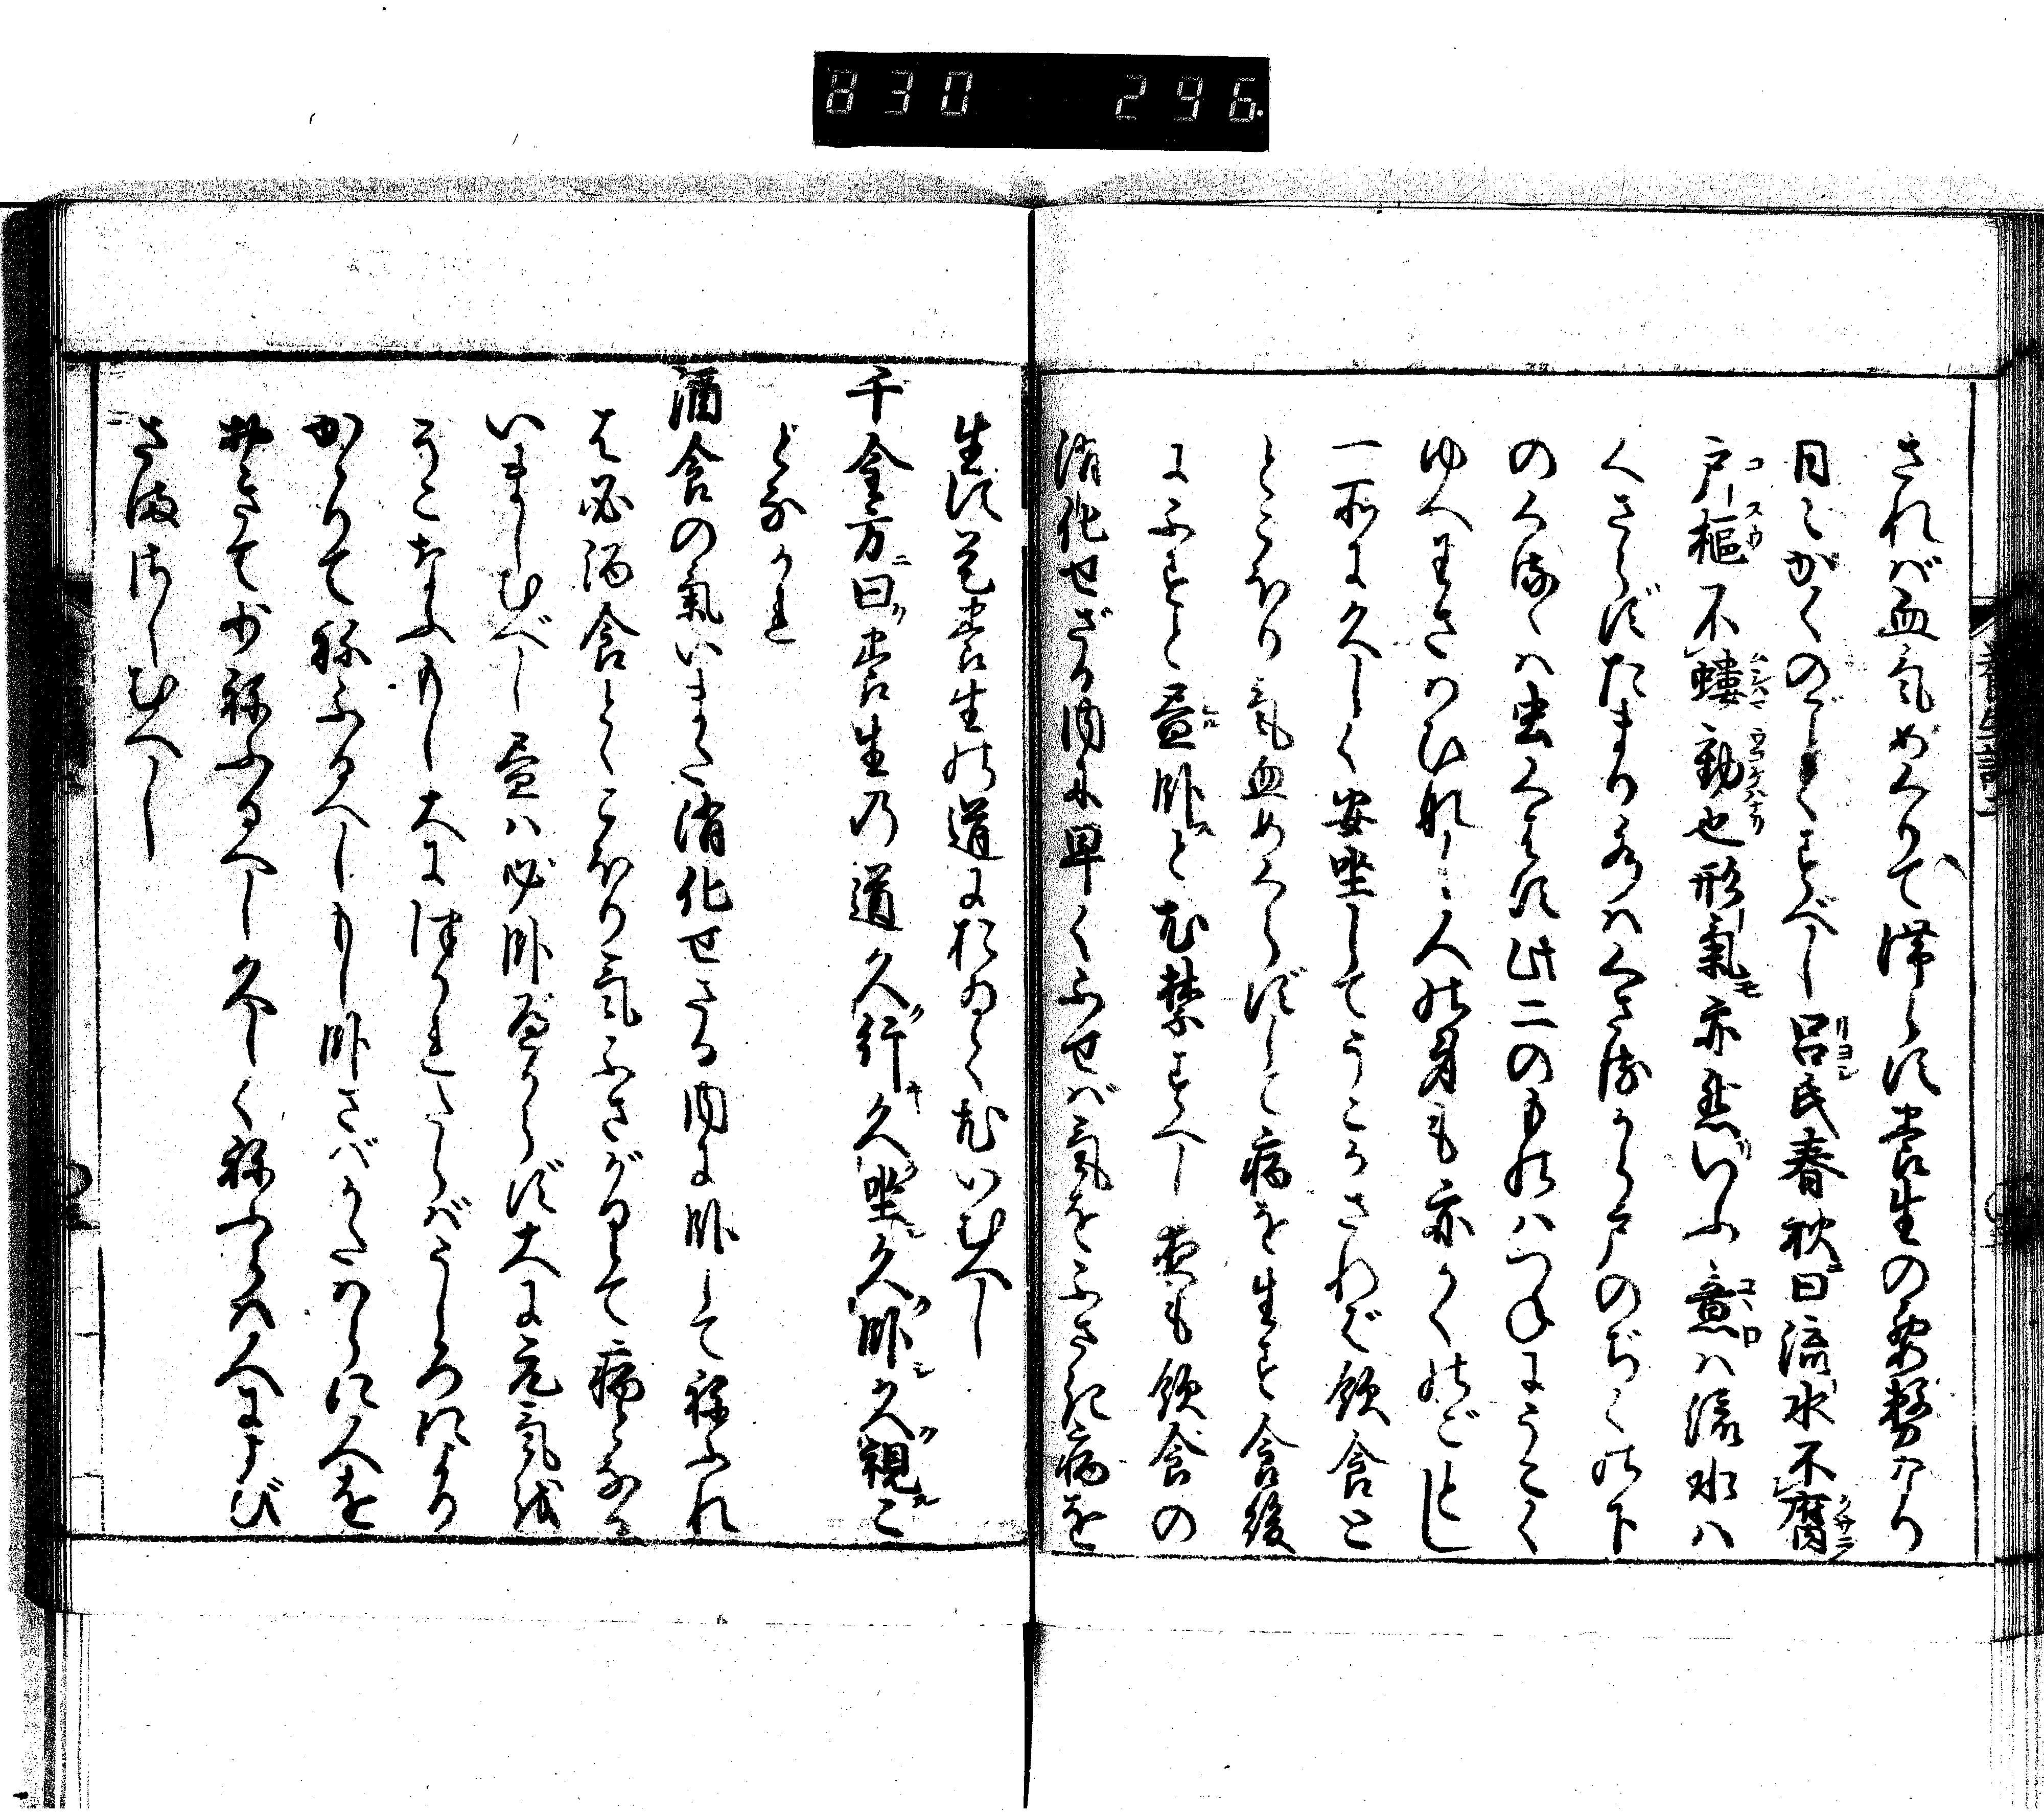 830 296.
されば血気めぐりて滞らず養生の要務なり
日々かくのごとくすべし呂氏春秋曰流水不腐
戸枢不螻動也形気亦然いふ意ハ流水ハ
くさらずたまり水ハくさる から戸のぢくの下
のくるゝハ虫くはず此二のものハつねにうごく
ゆへわざハひなし人の身も亦かくのごとし
一所に久しく安坐してうごかざれば飲食と
とこほり気血めぐらずして病を生ず食後
にふすと昼臥と尤禁ずべし夜も飲食の
消化せざる内に早くふせば気をふさぎ病を
生ず是養生の道におゐて尤いむべし
千金方曰養生の道久行久坐久臥久視こ
となかれ
酒食の気いまだ消化せざる内に臥してねふれ
ば必酒食とゞこほり気ふさがりて病となる
いましむべし昼は必臥べからず大に元気を
そこなふもし大につかれたらばうしろにより
かゝりてねふるべしもし臥さばかたはらに人を
おきて少ねふるべし久しくねふらば人によび
さまさしむべし